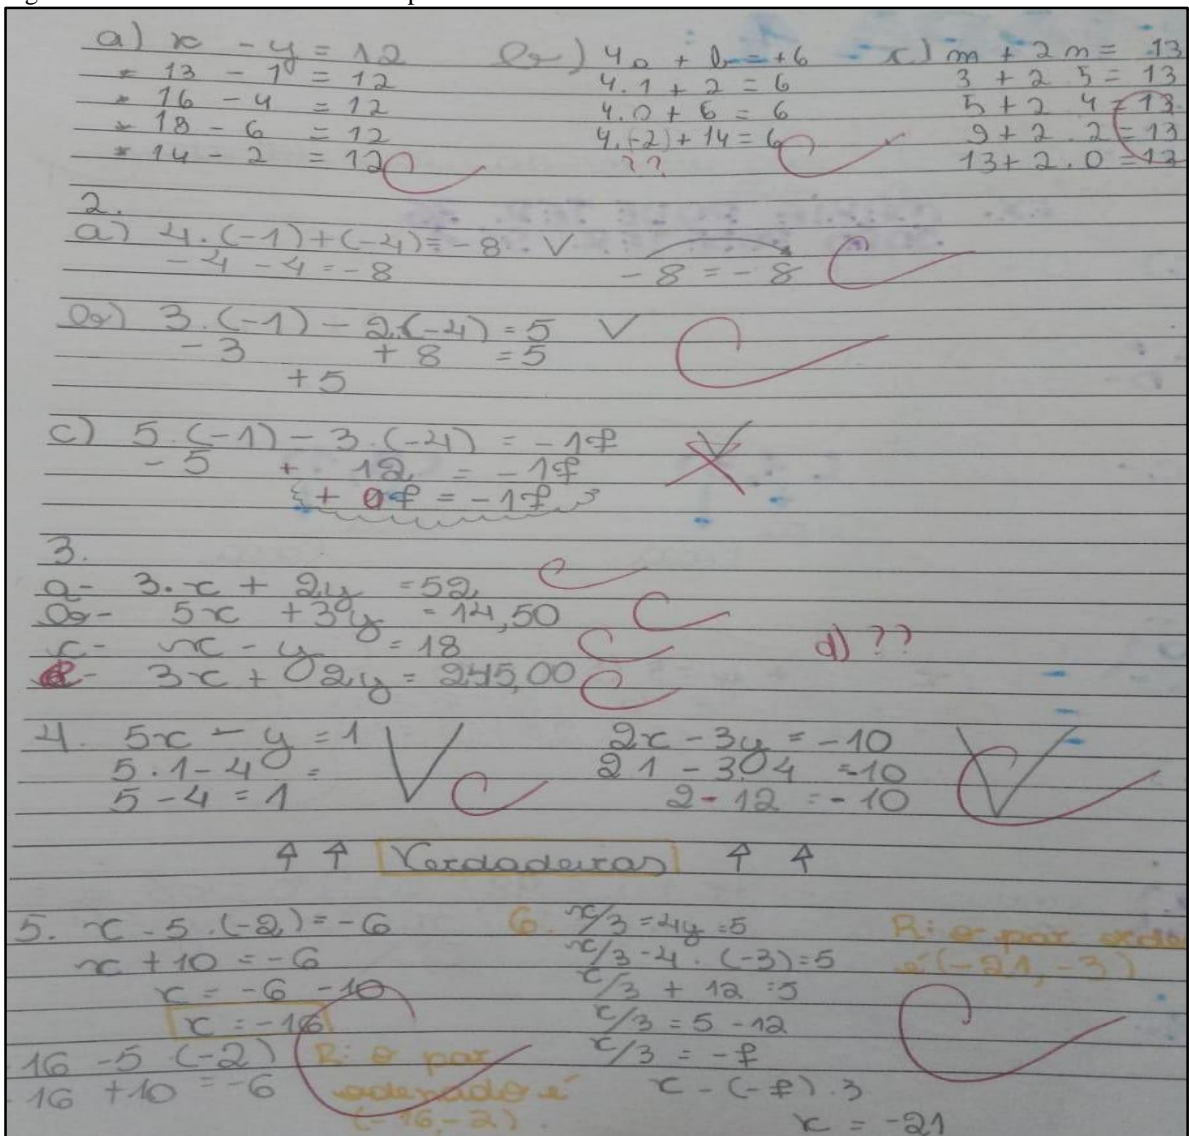 a) x - y = 12
* 13 - 1 = 12
* 16 - 4 = 12
* 18 - 6 = 12
* 14 - 2 = 12
b) 4a + b = +6
4.1 + 2 = 6
4.0 + 6 = 6
4.(-2) + 14 = 6
??
c) m + 2n = 13
3 + 2 5 = 13
5 + 2 4 = 13
9 + 2 . 2 = 13
13 + 2 . 0 = 13
2.
a) 4.(-1)+(-4) = -8 V
-4 - 4 = -8 -8 = -8
b) 3.(-1) - 2.(-4) = 5 V
-3 + 8 = 5
+5
c) 5.(-1) - 3.(-4) = -17
-5 + 12 = -17
{+ 07 = -17}
3.
a- 3.x + 2y = 52
b- 5x + 3y = 14,50
c- x - y = 18 d) ??
e- 3x + 2y = 245,00
4. 5x - y = 1 V
5.1 - 4 =
5 - 4 = 1
2x - 3y = -10 V
2 1 - 3.4 = -10
2 - 12 = -10
↑ ↑ Verdadeiras ↑ ↑
5. x - 5 . (-2) = -6
x + 10 = -6
x = -6 - 10
x = -16
16 - 5 (-2)
16 + 10 = -6
R: o par
ordenado é
(-16,-2).
6. x/3 = 4y = 5
x/3 - 4 . (-3) = 5
x/3 + 12 = 5
x/3 = 5 - 12
x/3 = -7
x - (-7) . 3
x = -21
R: o par orde
é (-21, -3)